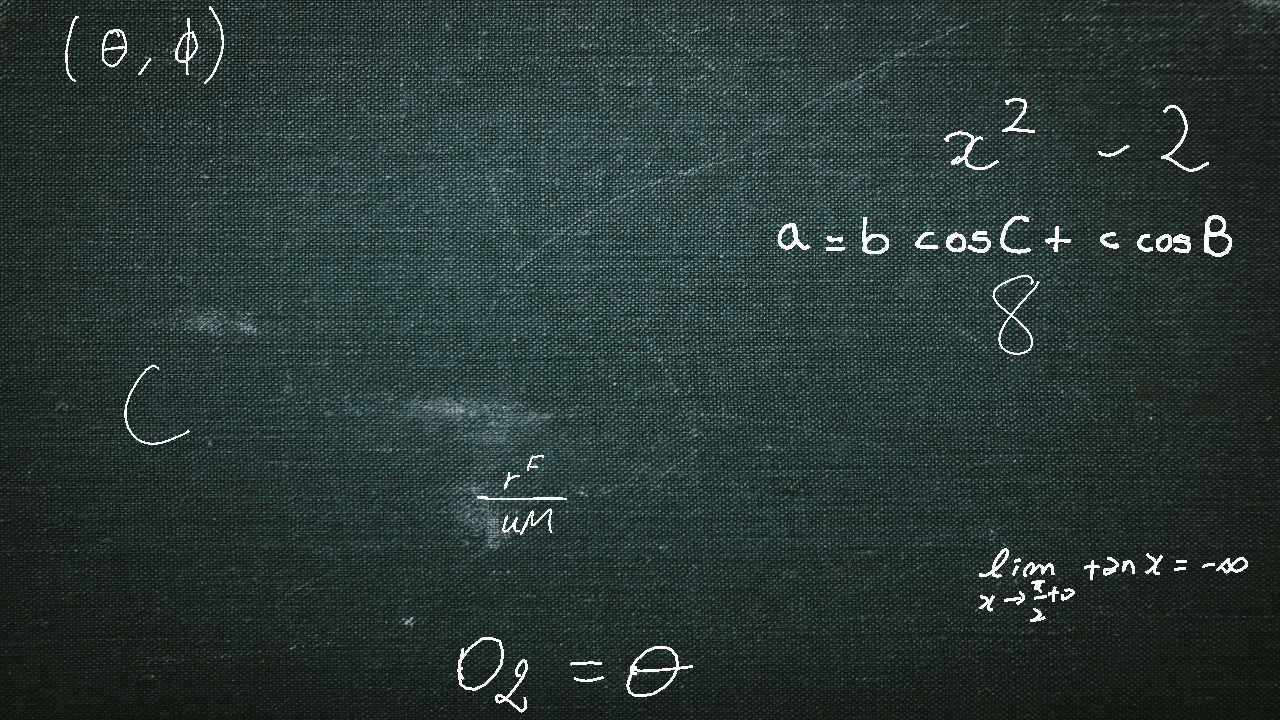 (θ, ϕ)
x² - 2
a = b cos C + c cos B
8
C
r^F / uM
lim x→π/2+0 tan x = -∞
O₂ = θ